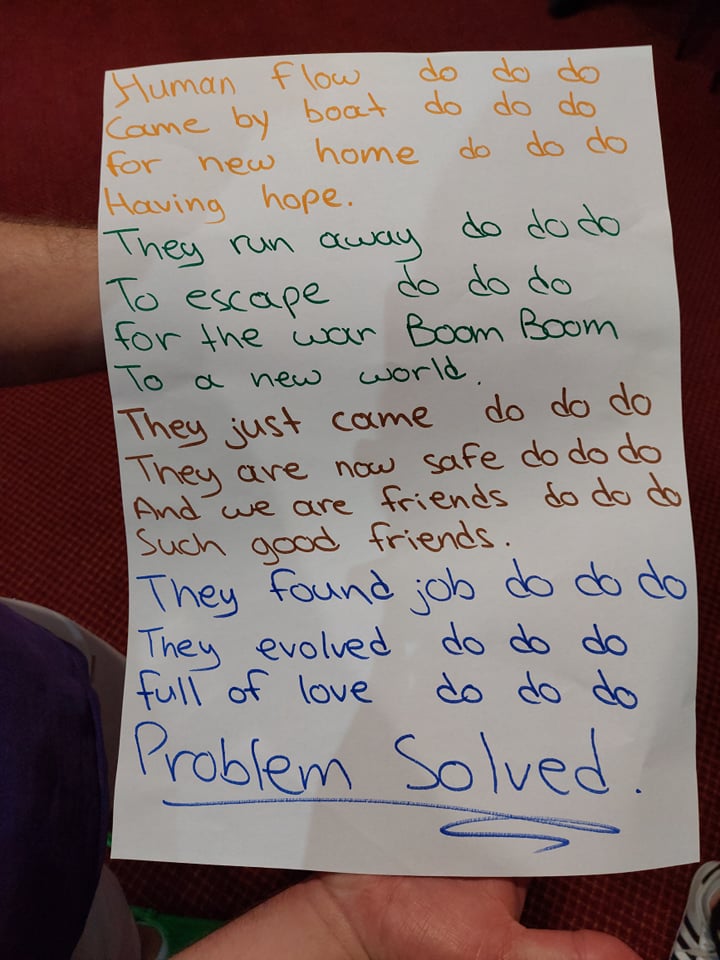 Human flow do do do
Came by boat do do do
for new home do do do
Having hope.
They run away do do do
To escape do do do
for the war Boom Boom
To a new world.
They just came do do do
They are now safe do do do
And we are friends do do do
Such good friends.
They found job do do do
They evolved do do do
full of love do do do
Problem Solved.